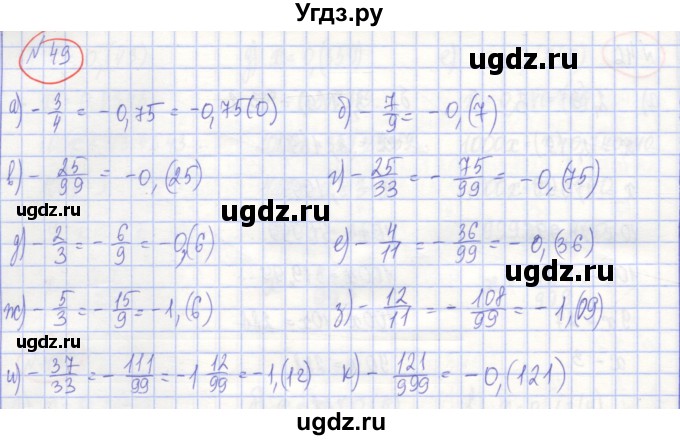 Угдз.ру
№ 49
ugdz.ru
а) - 3/4 = - 0,75 = - 0,75(0) б) - 7/9 = - 0,(7)
в) - 25/99 = - 0,(25) г) - 25/33 = - 75/99 = - 0,(75)
ugdz.ru ugdz.ru ugdz.ru
д) - 2/3 = - 6/9 = - 0,(6) е) - 4/11 = - 36/99 = - 0,(36)
ugdz.ru
ж) - 5/3 = - 15/9 = - 1,(6) з) - 12/11 = - 108/99 = - 1,(09)
ugdz.ru ugdz.ru
и) - 37/33 = - 111/99 = - 1 12/99 = - 1,(12) к) - 121/999 = - 0,(121)
ugdz.ru